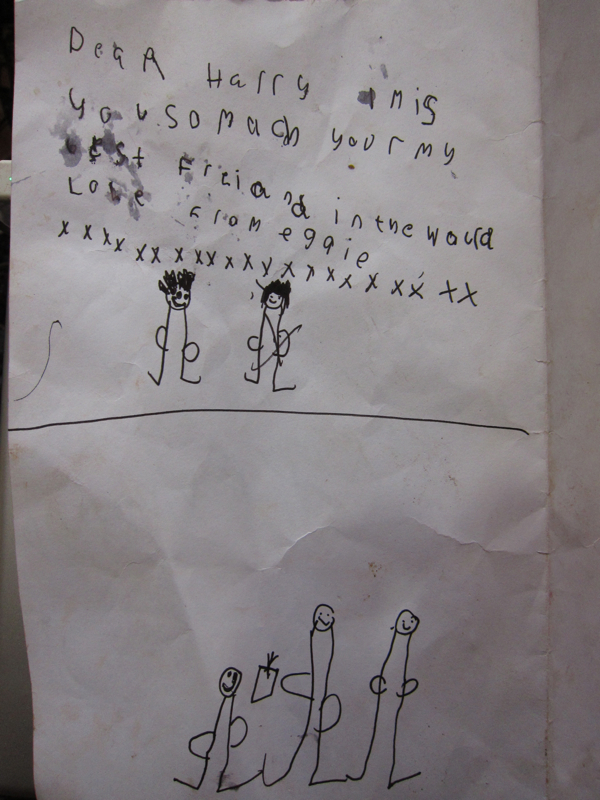 DeaR Harry I mis
you so mach your my
best freiand in the waurld
Love from eggie
x x x x x x x x x x x x x x x x x x x x x x x